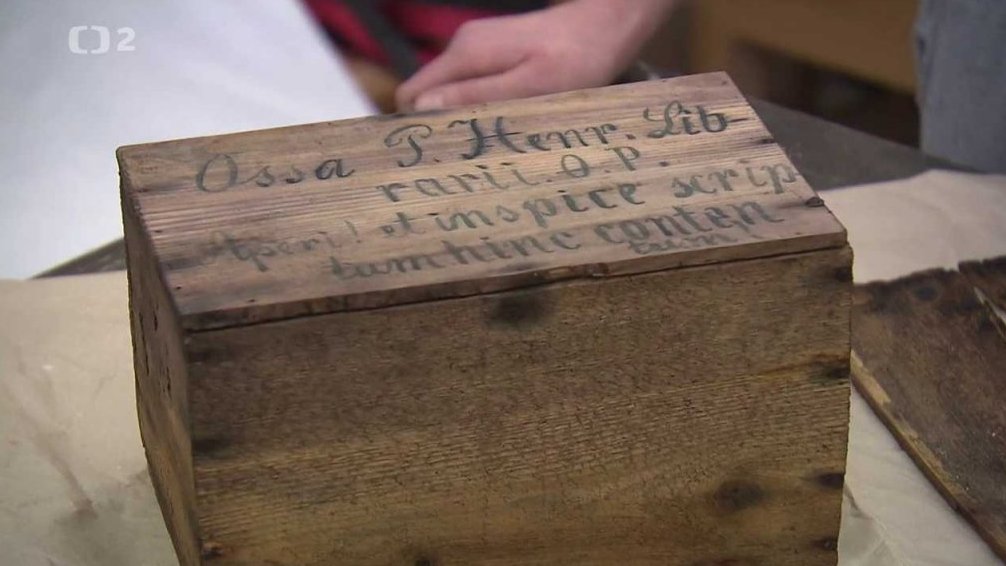 ČT 2
Ossa P. Henr. Lib-
rarii O. P.
Aperi! et inspice scrip
tum hinc conten
tum